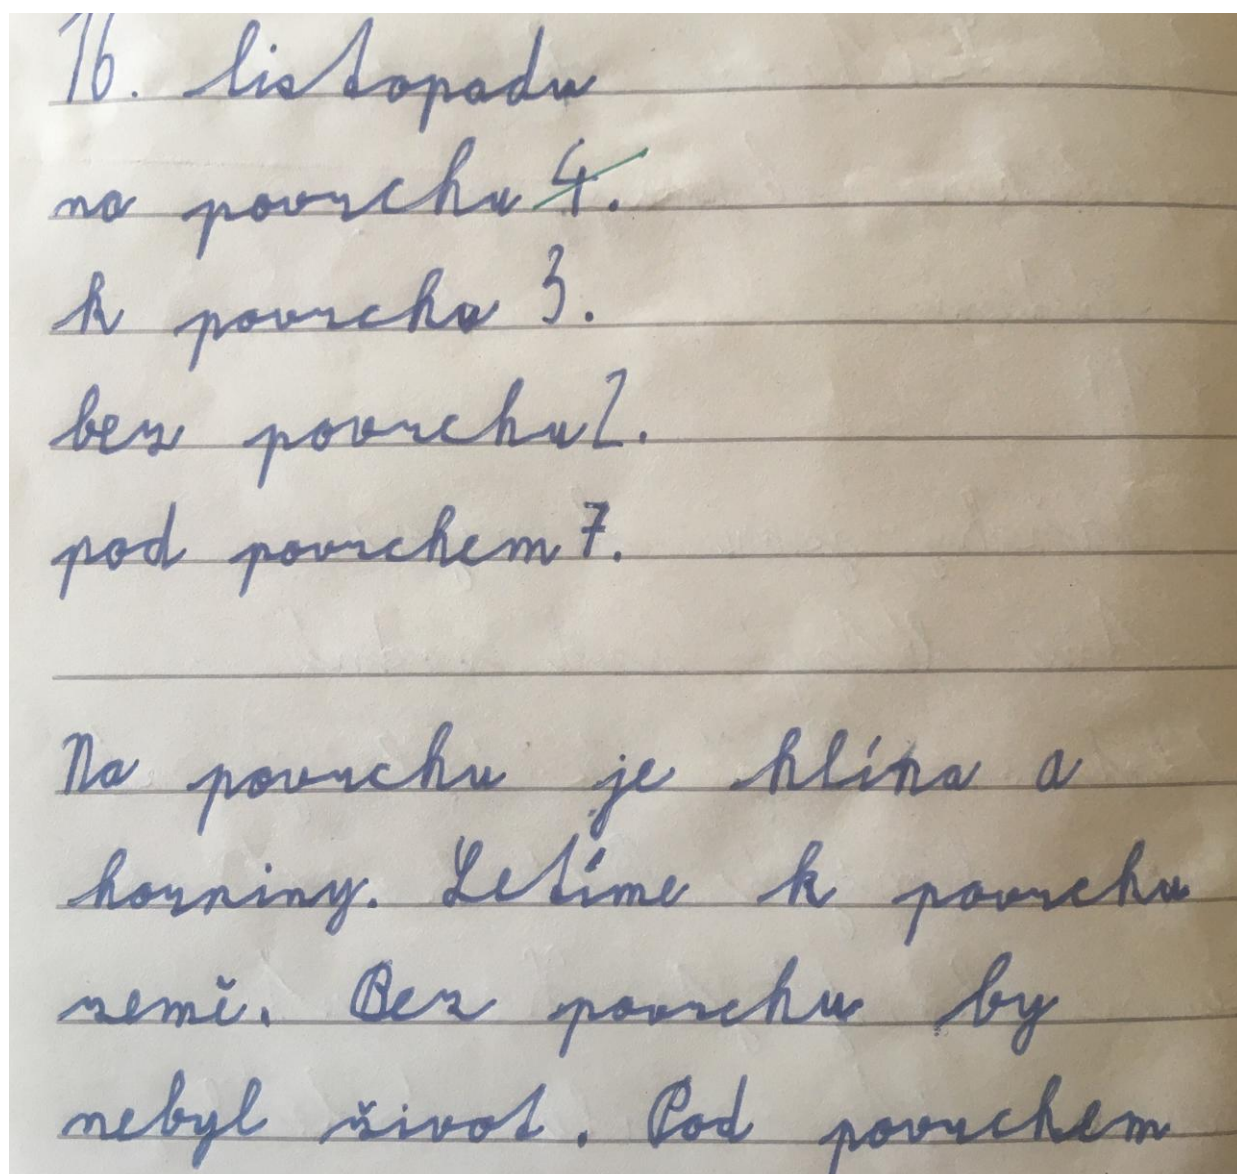 16. listopadu
na povrchu 4.
k povrchu 3.
bez povrchu 2.
pod povrchem 7.
Na povrchu je hlína a
horniny. Letíme k povrchu
země. Bez povrchu by
nebyl život. Pod povrchem